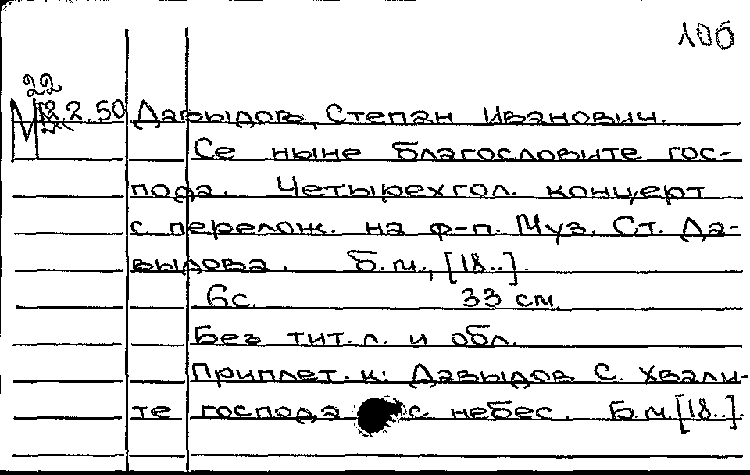 100
22
М 2.2.50 Давыдов, Степан Иванович.
Се ныне благословите гос-
пода. Четырехгол. концерт
с перелож. на ф-п. Муз. Ст. Да-
выдова. Б.м., [18..]
6с. 33 см
Без тит.л. и обл.
Приплет. к: Давыдов С. Хвали-
те господа с небес. Б.м. [18..].